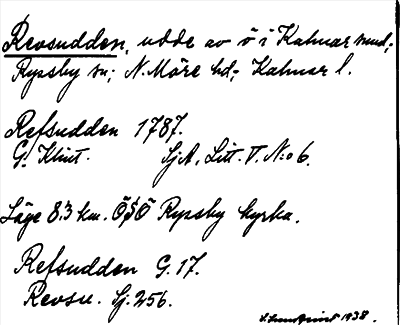 Revsudden, udde av ö i Kalmar sund;
Ryssby sn; N. Möre hd; Kalmar l.
Refsudden 1787.
G. Klint. SjA, Litt. V. N:o 6.
Läge 8.3 km. ÖSÖ Ryssby kyrka.
Refsudden G. 17.
Revsu. Sj. 256.
1938.